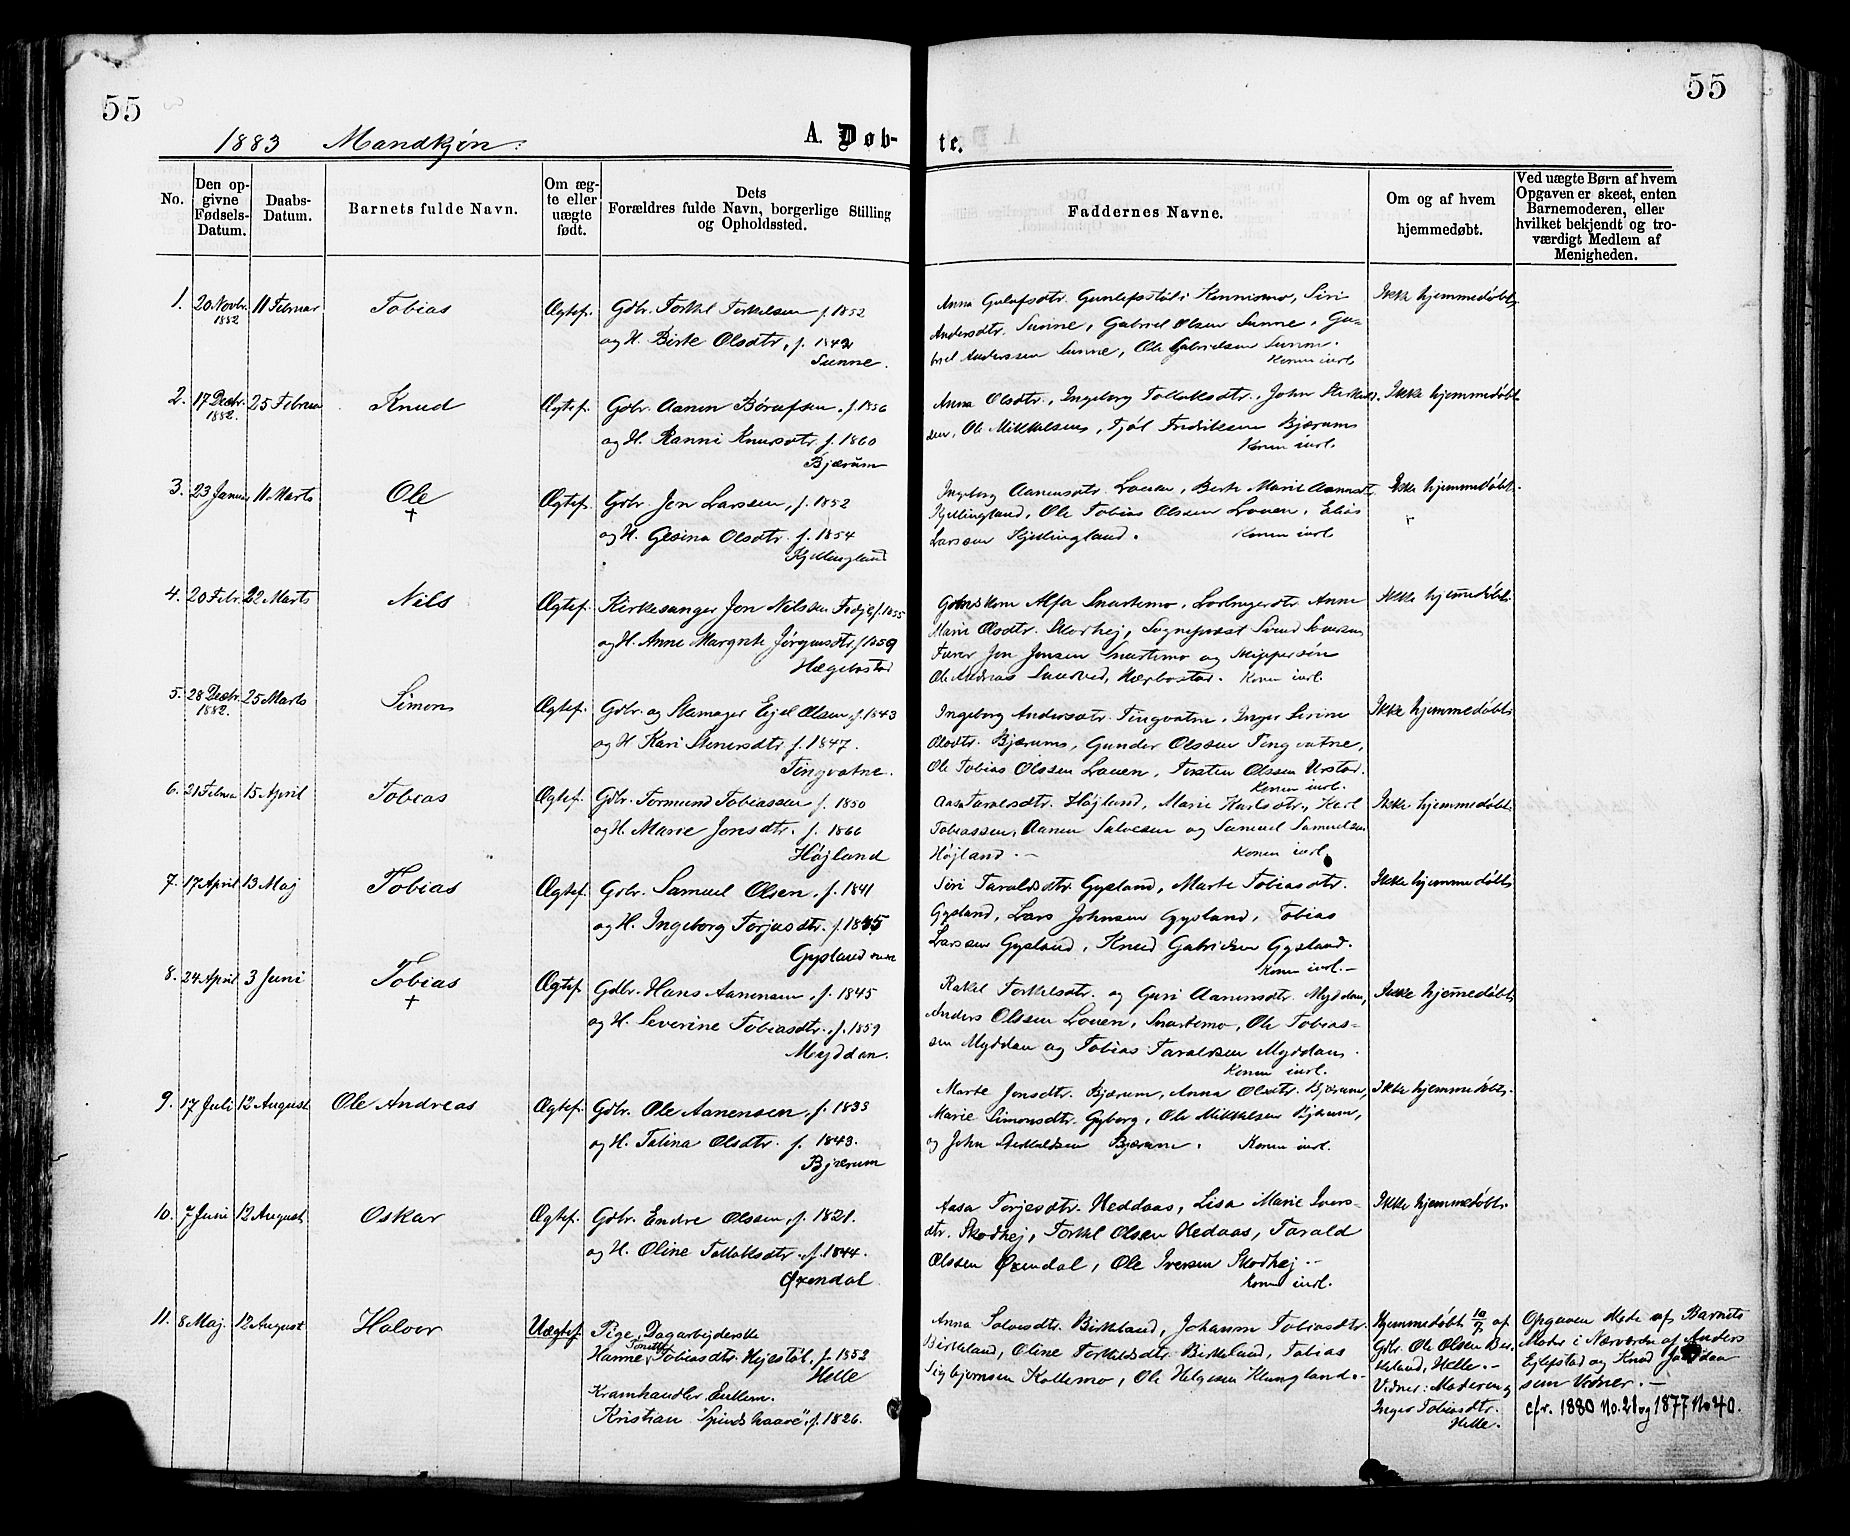 55
55
1883 Mandkjøn.
A. Døb-
te.
No.
Den op-
givne
Fødsels-
Datum.
Daabs-
Datum.
Barnets fulde Navn.
Om æg-
te eller
uægte
født.
Dets
Forældres fulde Navn, borgerlige Stilling
og Opholdssted.
Faddernes Navne.
Om og af hvem
hjemmedøbt.
Ved uægte Børn af hvem
Opgaven er skeet, enten
Barnemoderen, eller
hvilket bekjendt og tro-
værdigt Medlem af
Menigheden.
1. 20 Novbr. 1882
11 Februar
Tobias
Ægtef.
Gdbr. Torkel Torkelsen f. 1852
og H. Birte Olsdtr. f. 1842
Sunne.
Anna Gulufsdtr. Gunlefsstøl i Kennismo, Siri
Andersdtr. Sunne, Gabriel Olsen Sunne, Ga-
briel Anderssen Sunne, Ole Gabrielsen Sunne.
Konen inrl.
Ikke hjemmedøbt.
2. 17 Decbr. 1882.
25 Februar
Knud
Ægtef.
Gdbr. Aanen Børufsen, f. 1856
og H. Ranni Knursdtr. f. 1860
Bjærum
Anna Olsdtr., Ingeborg Tollaksdtr., John
sen, Ole Mikkelsen, Tjøl Fredriksen Bjærum
Konen inrl.
Ikke hjemmedøbt.
3. 23 Januar
11 Marts
Ole
†
Ægtef.
Gdbr. Jon Larssen, f. 1852
og H. Gesina Olsdtr. f. 1854
Kjellingland
Ingeborg Aanensdtr. Louen, Berte Marie Aanensdtr.
Kjellingland, Ole Tobias Olssen Louen, Elias
Larssen Kjellingland.
Konen inrl.
Ikke hjemmedøbt.
4. 20 Febr.
22 Marts
Nils
Ægtef.
Kirkesanger Jon Nilssen Fedje f. 1855
og H. Anne Margrete Jørgensdtr. f. 1859
Hægebostad
Alfa Snartemo, Anne
Marie Olsdtr. Skothej, Sognepræst Svend
Jon Jonsen Snartemo og Skippersøn
Ole Andreas Sandved, Hægbostad. Konen inrl.
Ikke hjemmedøbt.
5. 28 Decbr. 1882.
25 Marts
Simon
Ægtef.
Gdbr. og Stemager Ejel Olsen, f. 1843
og H. Kari Stenersdtr. f. 1847.
Tingvatne.
Ingeborg Andersdtr. Tingvatne, Inger Serine
Olsdtr. Bjærum, Gunder Olssen Tingvatne,
Ole Tobias Olssen Louen, Torsten Olssen Urstad.
Konen inrl.
Ikke hjemmedøbt.
6. 21 Februar
15 April
Tobias
Ægtef.
Gdbr. Tormund Tobiassen f. 1850
og H. Marie Jonsdtr. f. 1866
Højland
Aasa Taraldsdtr. Højland, Marie Karlsdtr., Karl
Tobiassen, Aanen Salvesen og Samuel Samuelsen
Højland.—
Konen inrl.
Ikke hjemmedøbt.
7. 17 April
13 Maj
Tobias
Ægtef.
Gdbr. Samuel Olsen, f. 1841
og H. Ingeborg Torjusdtr. f. 1845
Gysland
Siri Taraldsdtr. Gysland, Marte Tobiasdtr.
Gysland, Lars Johnsen Gysland, Tobias
Larssen Gysland, Knud Gabrielsen Gysland.
Konen inrl.—
Ikke hjemmedøbt.
8. 24 April
3 Juni
Tobias
†
Ægtef.
Gdbr. Hans Aanensen, f. 1845
og H. Severine Tobiasdtr. f. 1859
Myddan.
Rakel Torkelsdtr. og Guri Aanensdtr. Myddan,
Anders Olssen Louen, Snartemo, Ole Tobias-
sen Myddan og Tobias Taraldsen Myddan.
Konen inrl.
Ikke hjemmedøbt.
9. 17 Juli
12 August
Ole Andreas
Ægtef.
Gdbr. Ole Aanensen, f. 1833
og H. Talina Olsdtr. f. 1843.
Bjærum
Marte Jonsdtr. Bjærum, Anna Olsdtr. Bjærum,
Marie Simonsdtr. Gyborg, Ole Mikkelsen Bjærum,
og John Bjærum.
Konen inrl.
Ikke hjemmedøbt.
10. 7 Juni
12 August
Oskar
Ægtef.
Gdbr. Endre Olssen, f. 1821.
og H. Oline Tollaksdtr. f. 1844.
Øxendal.
Aasa Torjesdtr. Heddaas, Lisa Marie Ivers-
dtr. Skodhej, Torkel Olsen Hedaas, Tarald
Olssen Øxendal, Ole Iversen Skodhej.—
Konen inrl.
Ikke hjemmedøbt.
11. 8 Maj.
12 August
Halvor
Uægtef.
Pige, Dagarbejderske
Hanne Tobiasdtr. Hejestøl, f. 1852
Helle
Kramhandler,
Kristian "Spindshaare", f. 1826.
Anna Salvesdtr. Birkeland, Johanne Tobiasdtr.
Birkeland, Oline Torkeldsdtr. Birkeland, Tobias
Sigbjørnsen Kollemo, Ole Helgesen Klungland.
Hjemmedøbt 10/7 af
Gdbr. Ole Olsen Ber-
keland, Helle.—
Vidner: Moderen og
Inger Tobiasdtr.
Helle.
Opgaven skede af Barnets
Moder i Nærværelse af Anders
Ejlifstad og Knud
sen Vidner.—
cfr. 1880 No. 21 og 1877 No 40.